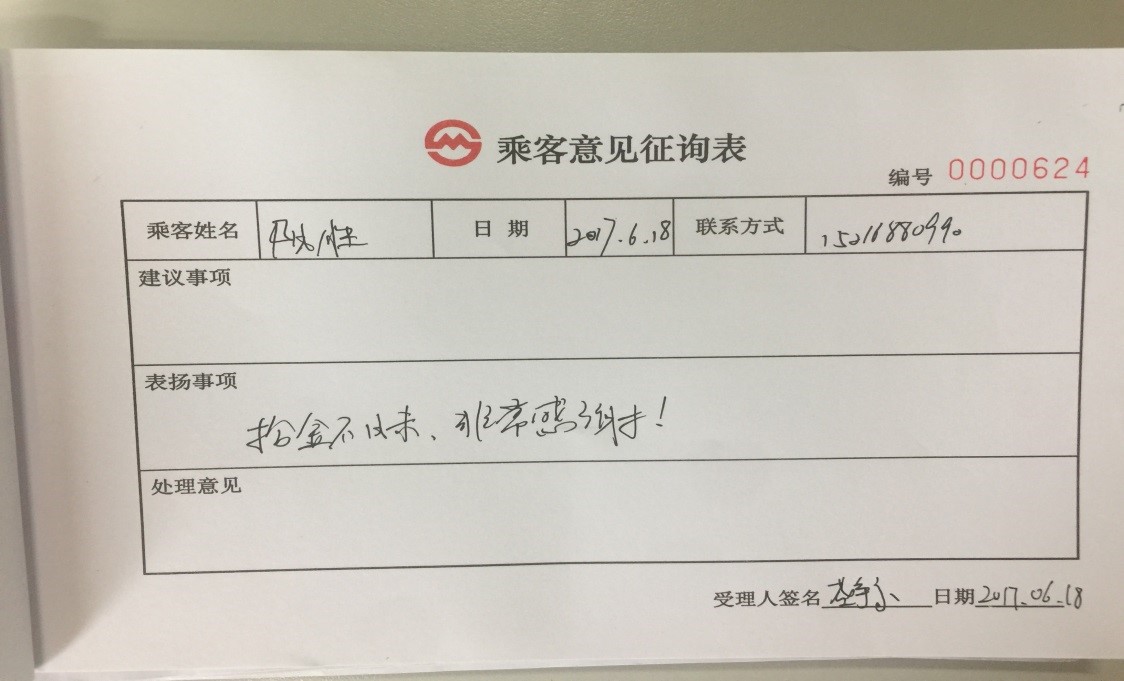 乘客意见征询表
编号 0000624
乘客姓名 日期 2017.6.18 联系方式 150216880990
建议事项
表扬事项
拾金不昧、非常感谢!
处理意见
受理人签名 日期 2017.06.18